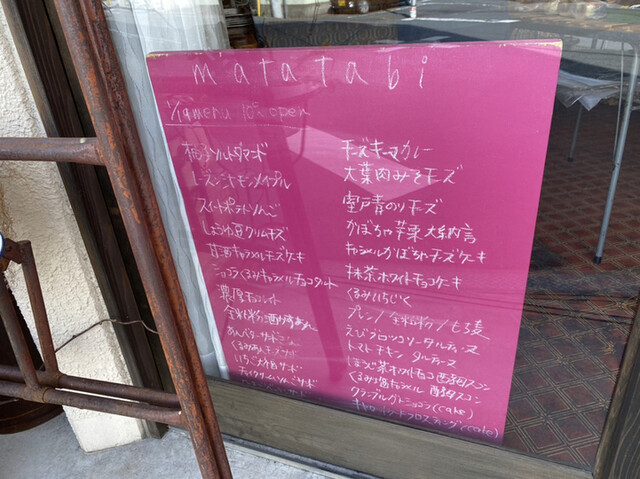 matatabi
1/19 menu 10:00 open
柚子ソルトダマンド
レーズンシナモンメイプル
スイートポテトりんご
しょうゆ豆クリームチーズ
甘酒キャラメルチーズケーキ
ショコラくるみキャラメルチョコタルト
濃厚チョコレート
全粒粉酒
あんバターサンド
くるみあん サンド
いちご大福サンド
サンド
チーズキーマカレー
大葉肉みそチーズ
室戸青のりチーズ
かぼちゃ 栗 大納言
キャラメルかぼちゃチーズケーキ
抹茶ホワイトチョコケーキ
くるみいちじく
プレーン/全粒粉/もち麦
えびブロッコリータルティーヌ
トマトチキン タルティーヌ
ほうじ茶ホワイトチョコ 酒粕スコーン
くるみ塩キャラメル 酒粕スコーン
クランブルガトーショコラ(cake)
キャロットフロスティング(cake)